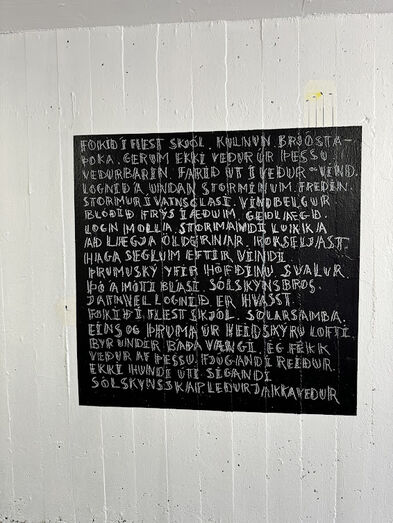 FOKIÐ Í FLEST SKJÓL. KULNUN. BRJÓSTA-
ÞOKA. GERUM EKKI VEÐUR ÚR ÞESSU.
VEÐURBARIN. FARIÐ ÚT Í VEÐUR OG VIND.
LOGNIÐ Á UNDAN STORMINUM. FREÐIN.
STORMUR Í VATNSGLASI. VINDBELGUR
BLÓÐIÐ FRÝS Í ÆÐUM. GEÐLÆGÐ.
LOGNMOLLA. STORMANDI LUKKA
AÐ LÆGJA ÖLDURNAR. ROKSELJAST.
HAGA SEGLUM EFTIR VINDI.
ÞRUMUSKÝ YFIR HÖFÐINU. SVALUR
ÞÓ Á MÓTI BLÁSI. SÓLSKINSBROS.
JAFNVEL LOGNIÐ ER HVASST.
FOKIÐ Í FLEST SKJÓL. SÓLARSAMBA.
EINS OG ÞRUMA ÚR HEIÐSKÝRU LOFTI.
BYR UNDIR BÁÐA VÆNGI. ÉG FÉKK
VEÐUR AF ÞESSU. FJÚGANDI REIÐUR.
EKKI HUNDI ÚT SIGANDI
SÓLSKINSSKAP. LEÐURJAKKAVEÐUR